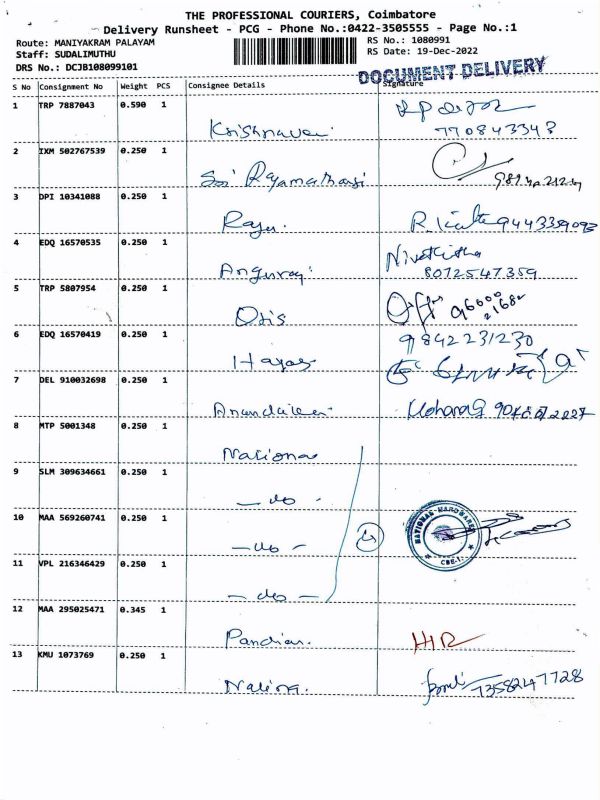 THE PROFESSIONAL COURIERS, Coimbatore
Delivery Runsheet - PCG - Phone No.:0422-3505555 - Page No.:1
Route: MANIYAKRAM PALAYAM
RS No.: 1080991
Staff: SUDALIMUTHU
RS Date: 19-Dec-2022
DRS No.: DCJB108099101
DOCUMENT DELIVERY
S No Consignment No Weight PCS Consignee Details Signature
1 TRP 7887043 0.590 1
Krishnaveni
770843343
2 IXM 502767539 0.250 1
Sri
3 DPI 10341088 0.250 1
Raju.
4 EDQ 16570535 0.250 1
8072547359
5 TRP 5807954 0.250 1
Otis
6 EDQ 16570419 0.250 1
9842231230
7 DEL 910032698 0.250 1
8 MTP 5001348 0.250 1
National
9 SLM 309634661 0.250 1
- do -
10 MAA 569260741 0.250 1
- do -
NATIONAL HARDWARE
CBE-1.
11 VPL 216346429 0.250 1
- do -
12 MAA 295025471 0.345 1
Pandian.
13 KMU 1073769 0.250 1
Nalina.
7358247728